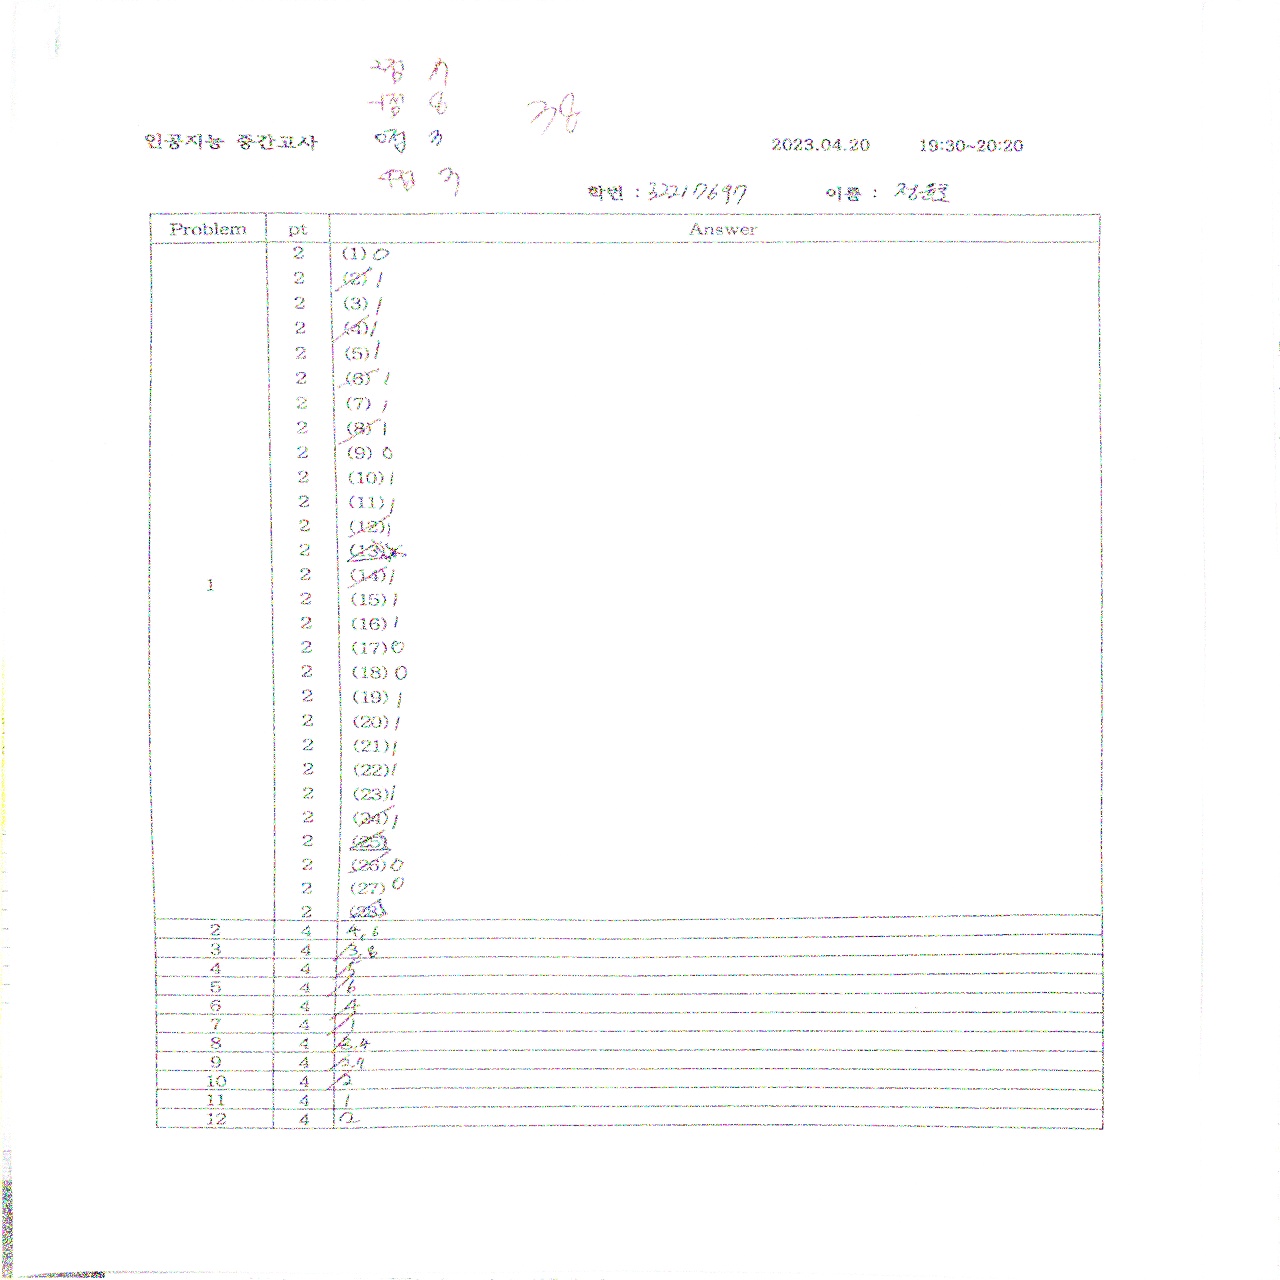 2점 7
-1점 8
38
인공지능 중간고사 0점 3 2023.04.20 19:30~20:20
4점 3
학번 : 32217697 이름 :
Problem pt Answer
2 (1) 0
2 (2) 1
2 (3) 1
2 (4) 1
2 (5) 1
2 (6) 1
2 (7) 1
2 (8) 1
2 (9) 0
2 (10) 1
2 (11) 1
2 (12) 1
2 (13)
1 2 (14) 1
2 (15) 1
2 (16) 1
2 (17) 0
2 (18) 0
2 (19) 1
2 (20) 1
2 (21) 1
2 (22) 1
2 (23) 1
2 (24) 1
2 (25)
2 (26) 0
2 (27) 0
2 (28)
2 4 4,6
3 4 3,6
4 4 5
5 4 6
6 4 4
7 4 1
8 4 2,4
9 4 2,7
10 4 2
11 4 1
12 4 2